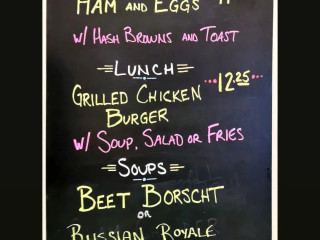 HAM AND EGGS
W/ HASH BROWNS AND TOAST
LUNCH
GRILLED CHICKEN 12.25
BURGER
W/ SOUP, SALAD OR FRIES
SOUPS
BEET BORSCHT
OR
RUSSIAN ROYALE